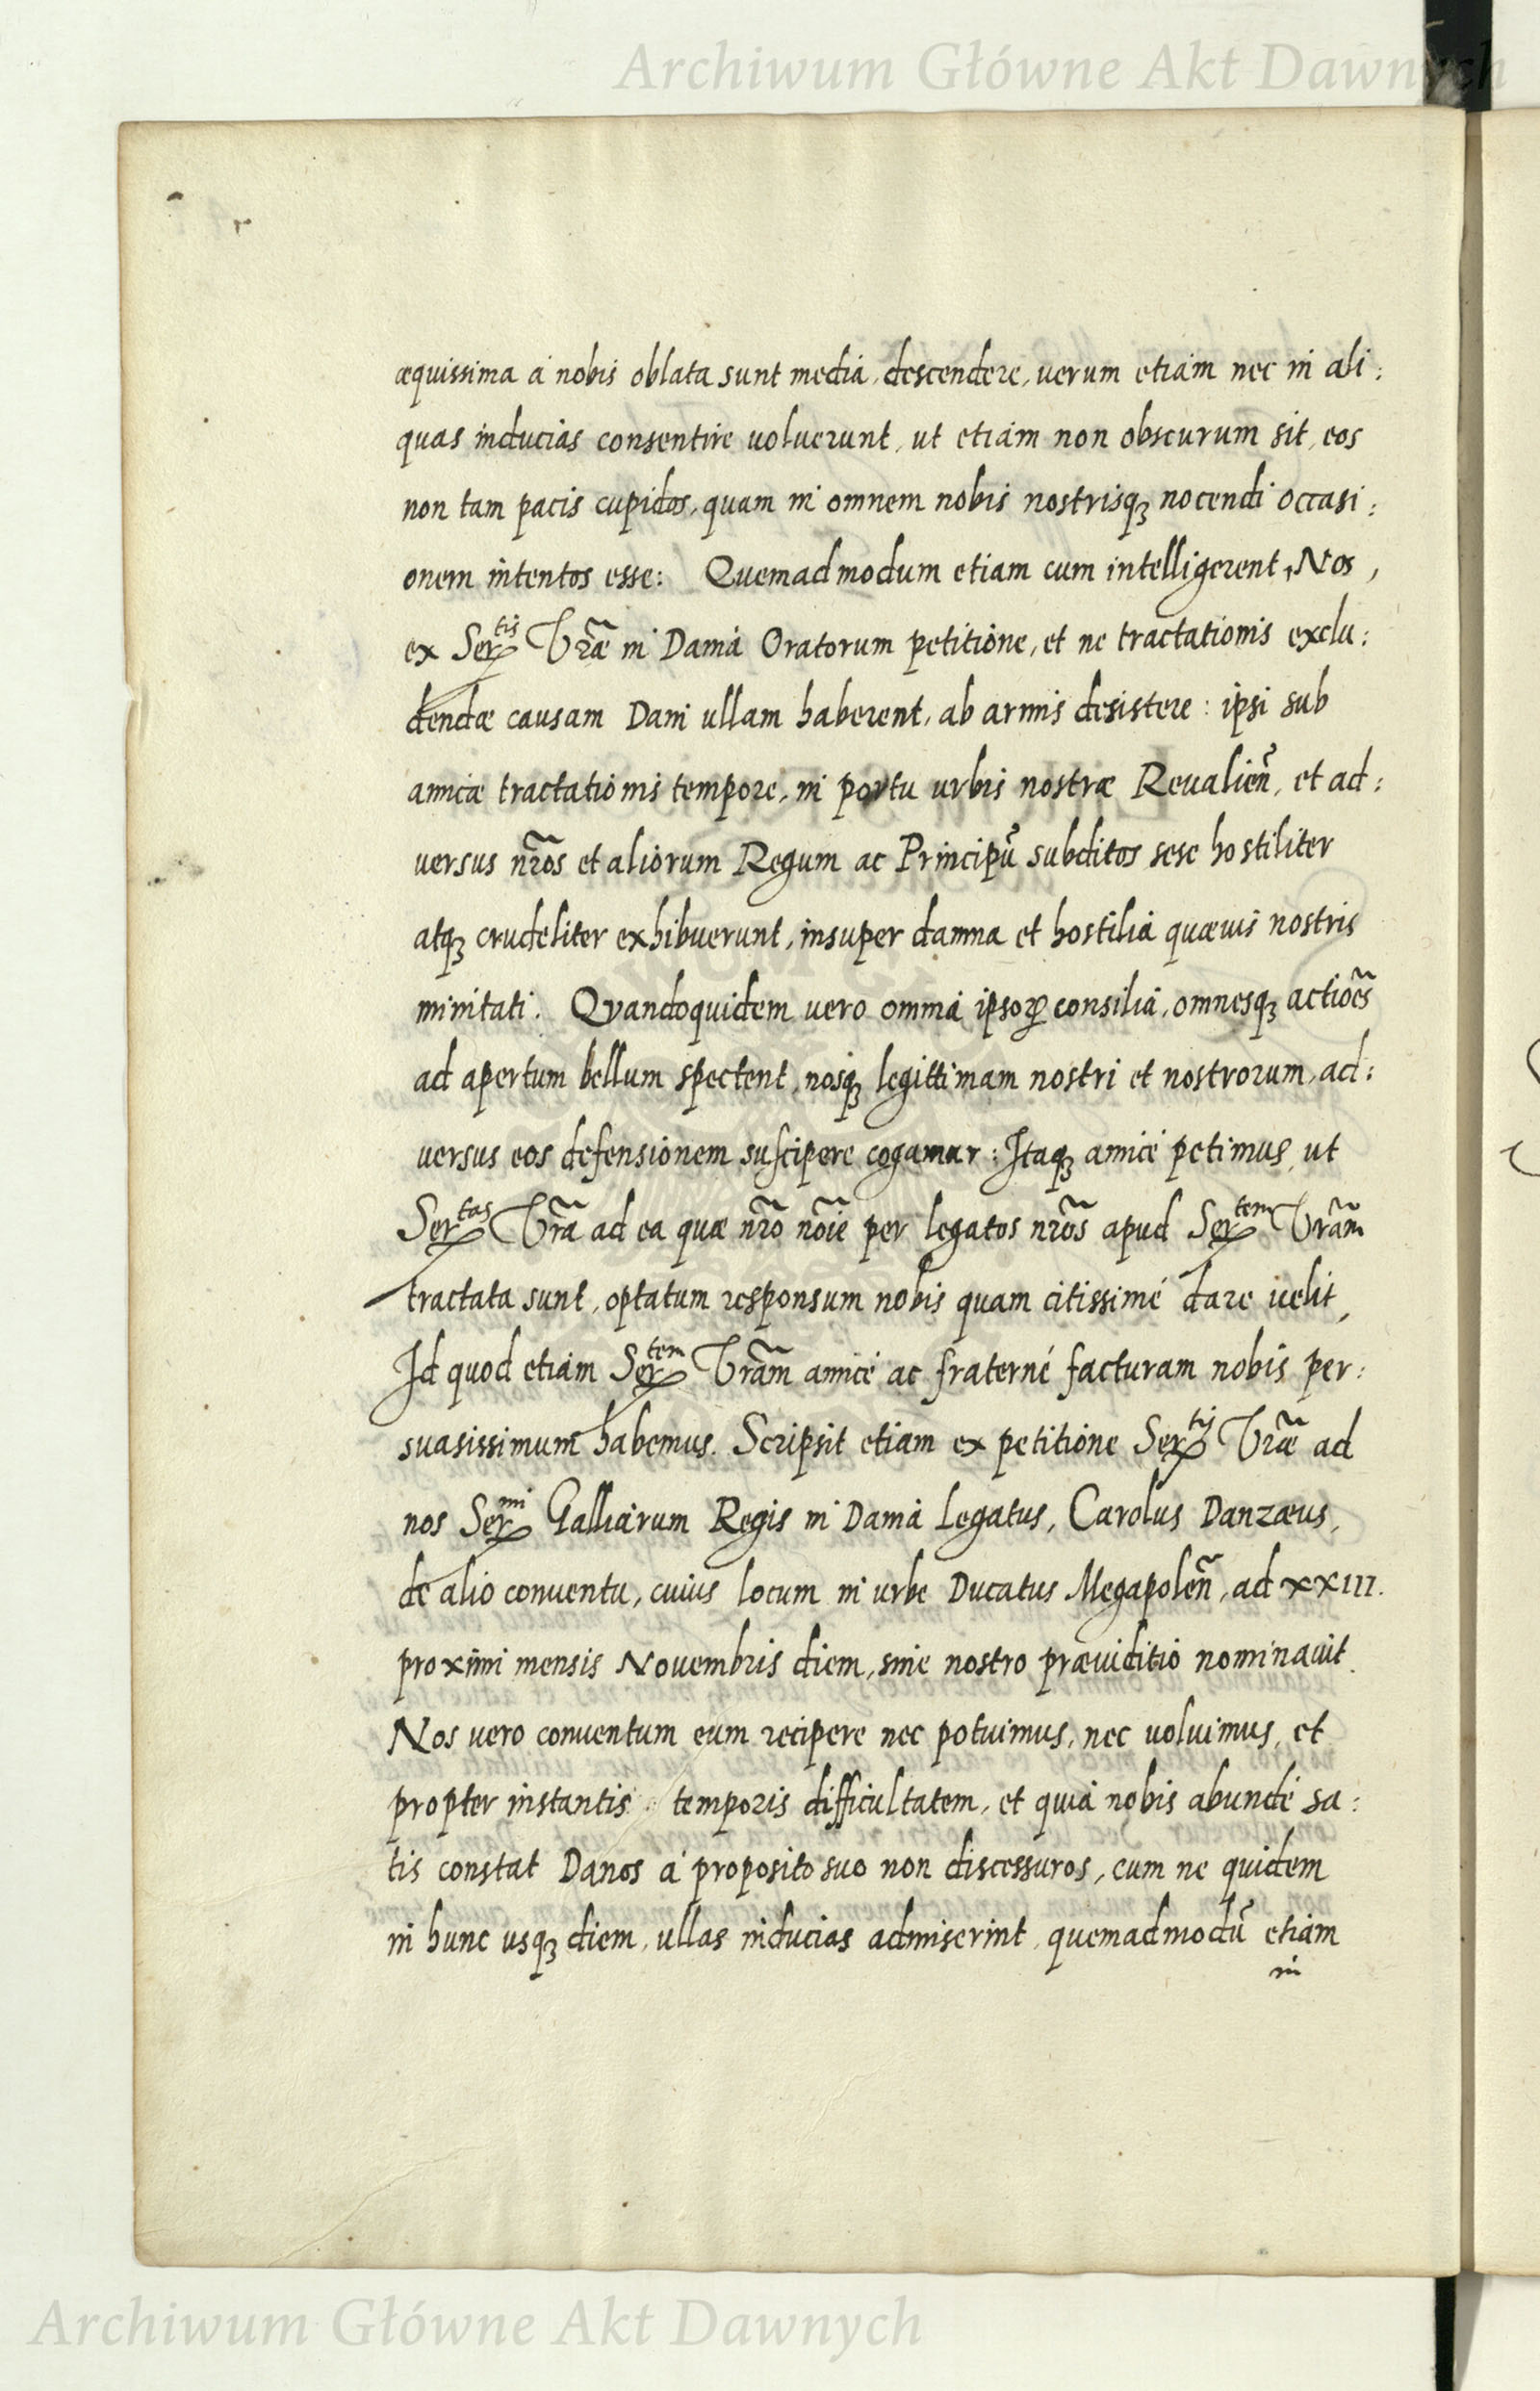 Archiwum Główne Akt Dawnych
æquissima á nobis oblata sunt media, descendere, uerum etiam nec in ali:
quas inducias consentire uoluerunt, ut etiam non obscurum sit, eos
non tam pacis cupidos, quam in omnem nobis nostrisqꝫ nocendi occasi:
onem intentos esse: Quemadmodum etiam cum intelligerent, Nos,
ex Serᵗⁱˢ Vr̃æ in Dania Oratorum petitione, et ne tractationis exclu:
dendæ causam Dani ullam haberent, ab armis desistere: ipsi sub
amicæ tractationis tempore, in portu urbis nostræ Reualieñ, et ad:
uersus nr̃os et aliorum Regum ac Principũ subditos sese hostiliter
atqꝫ crudeliter exhibuerunt, insuper damna et hostilia quæuis nostris
minitati. Quandoquidem uero omnia ipsoꝝ consilia, omnesqꝫ actiões
ad apertum bellum spectent, nosqꝫ legittimam nostri et nostrorum, ad:
uersus eos defensionem suscipere cogamur: Itaqꝫ amicé petimus, ut
Serᵗᵃˢ Vr̃a ad ea quæ nr̃o nõie per legatos nr̃os apud Serᵗᵉᵐ Vr̃am
tractata sunt, optatum responsum nobis quam citissimé dare uelit,
Id quod etiam Serᵗᵉᵐ Vr̃am amicé ac fraterné facturam nobis per:
suasissimum habemus. Scripsit etiam ex petitione Serᵗⁱʲ Vr̃æ ad
nos Serᵐⁱ Galliarum Regis in Dania Legatus, Carolus Danzæus,
de alio conuentu, cuius locum in urbe Ducatus Megapoleñ, ad XXIII.
proximi mensis Nouembris diem, sine nostro præiuditio nominauit.
Nos uero conuentum eum recipere nec potuimus, nec uoluimus, et
propter instantis temporis difficultatem, et quia nobis abundé sa:
tis constat Danos á proposito suo non discessuros, cum ne quidem
in hunc usqꝫ diem, ullas inducias admiserint, quemadmodũ etiam
in
Archiwum Główne Akt Dawnych